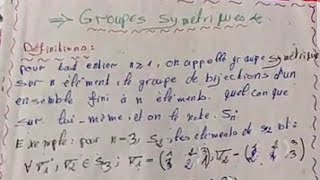 ⇒ Groupes symetriques
Définitions:
pour tout entier n≥1, on appelle groupe symétrique
sur n élément, le groupe de bijections d'un
ensemble fini à n éléments quelconque
sur lui-même, et on le note. Sn
Exemple: par n=3, S3, les éléments de S3